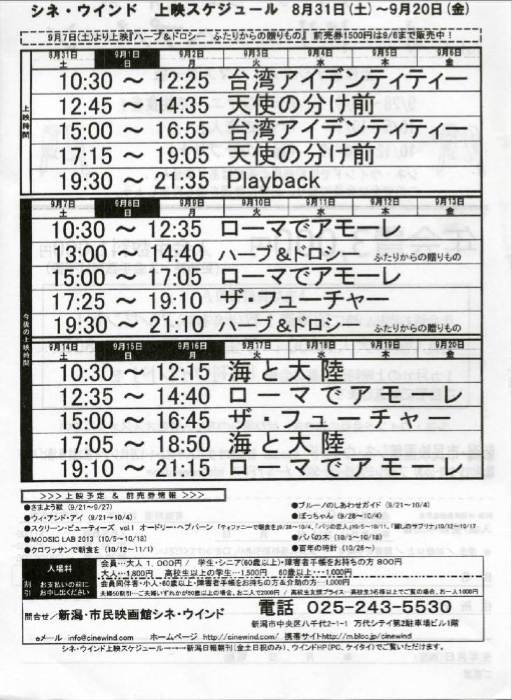 シネ・ウインド 上映スケジュール 8月31日(土)~9月20日(金)
9月7日(土)より上映『ハーブ&ドロシー ふたりからの贈りもの』 前売券1500円は9/6まで販売中!
8月31日 9月1日 9月2日 9月3日 9月4日 9月5日 9月6日
土 日 月 火 水 木 金
上映時間
10:30 ~ 12:25 台湾アイデンティティー
12:45 ~ 14:35 天使の分け前
15:00 ~ 16:55 台湾アイデンティティー
17:15 ~ 19:05 天使の分け前
19:30 ~ 21:35 Playback
9月7日 9月8日 9月9日 9月10日 9月11日 9月12日 9月13日
土 日 月 火 水 木 金
今後の上映時間
10:30 ~ 12:35 ローマでアモーレ
13:00 ~ 14:40 ハーブ&ドロシー ふたりからの贈りもの
15:00 ~ 17:05 ローマでアモーレ
17:25 ~ 19:10 ザ・フューチャー
19:30 ~ 21:10 ハーブ&ドロシー ふたりからの贈りもの
9月14日 9月15日 9月16日 9月17日 9月18日 9月19日 9月20日
土 日 月 火 水 木 金
10:30 ~ 12:15 海と大陸
12:35 ~ 14:40 ローマでアモーレ
15:00 ~ 16:45 ザ・フューチャー
17:05 ~ 18:50 海と大陸
19:10 ~ 21:15 ローマでアモーレ
>>>上映予定 & 前売券情報 >>>
●さまよう獣 (9/21~9/27)
●ウィ・アンド・アイ (9/21~10/4)
●スクリーン・ビューティーズ vol.1 オードリー・ヘプバーン 「ティファニーで朝食を」9/28~10/4、「パリの恋人」10/5~10/11、「麗しのサブリナ」10/12~10/17
●MOOSIC LAB 2013 (10/5~10/18)
●クロワッサンで朝食を (10/12~11/1)
●ブルーノのしあわせガイド (9/21~10/4)
●ぼっちゃん (9/28~10/4)
●パパの木 (10/5~10/18)
●百年の時計 (10/26~)
入場料
会員…大人 1,000円 / 学生・シニア(60歳以上)・障害者手帳をお持ちの方 800円
大人…1,800円 高校生以上の学生…1,500円 60歳以上…1,000円
割引
お支払いの前にお申し出ください
会員同伴者・小人・60歳以上・障害者手帳をお持ちの方&介助の方…1,000円
夫婦50割引…ご夫婦いずれかが50歳以上の場合、お二人で2000円 / 高校生友情プライス…高校生3名様以上でご覧の場合、お一人1000円
問合せ/新潟・市民映画館シネ・ウインド 電話 025-243-5530
新潟市中央区八千代2-1-1 万代シテイ第2駐車場ビル1階
eメール info@cinewind.com ホームページ http://cinewind.com/ 携帯サイトhttp://m.bloc.jp/cinewind
シネ・ウインド上映スケジュール→→→新潟日報朝刊(金土日祝のみ)、ウインドHP(PC、ケイタイ)でご覧いただけます。